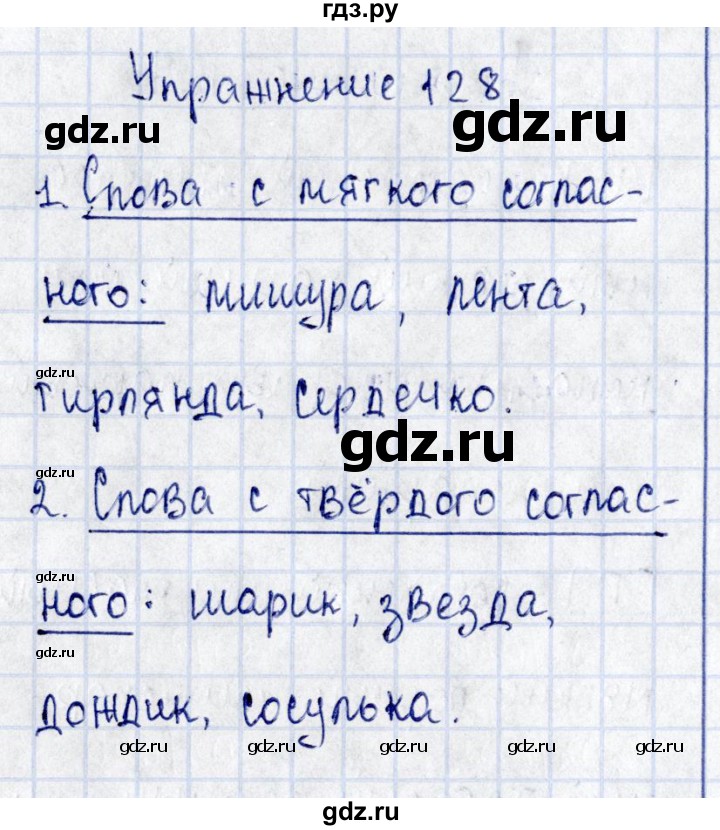 гдз.ру
Упражнение 128
gdz.ru gdz.ru
1. Слова с мягкого соглас-
ного: мишура, лента,
gdz.ru
гирлянда, сердечко.
gdz.ru
gdz.ru
2. Слова с твёрдого соглас-
gdz.ru
ного: шарик, звезда,
gdz.ru
дождик, сосулька.
gdz.ru gdz.ru gdz.ru gdz.ru gdz.ru
gdz.ru